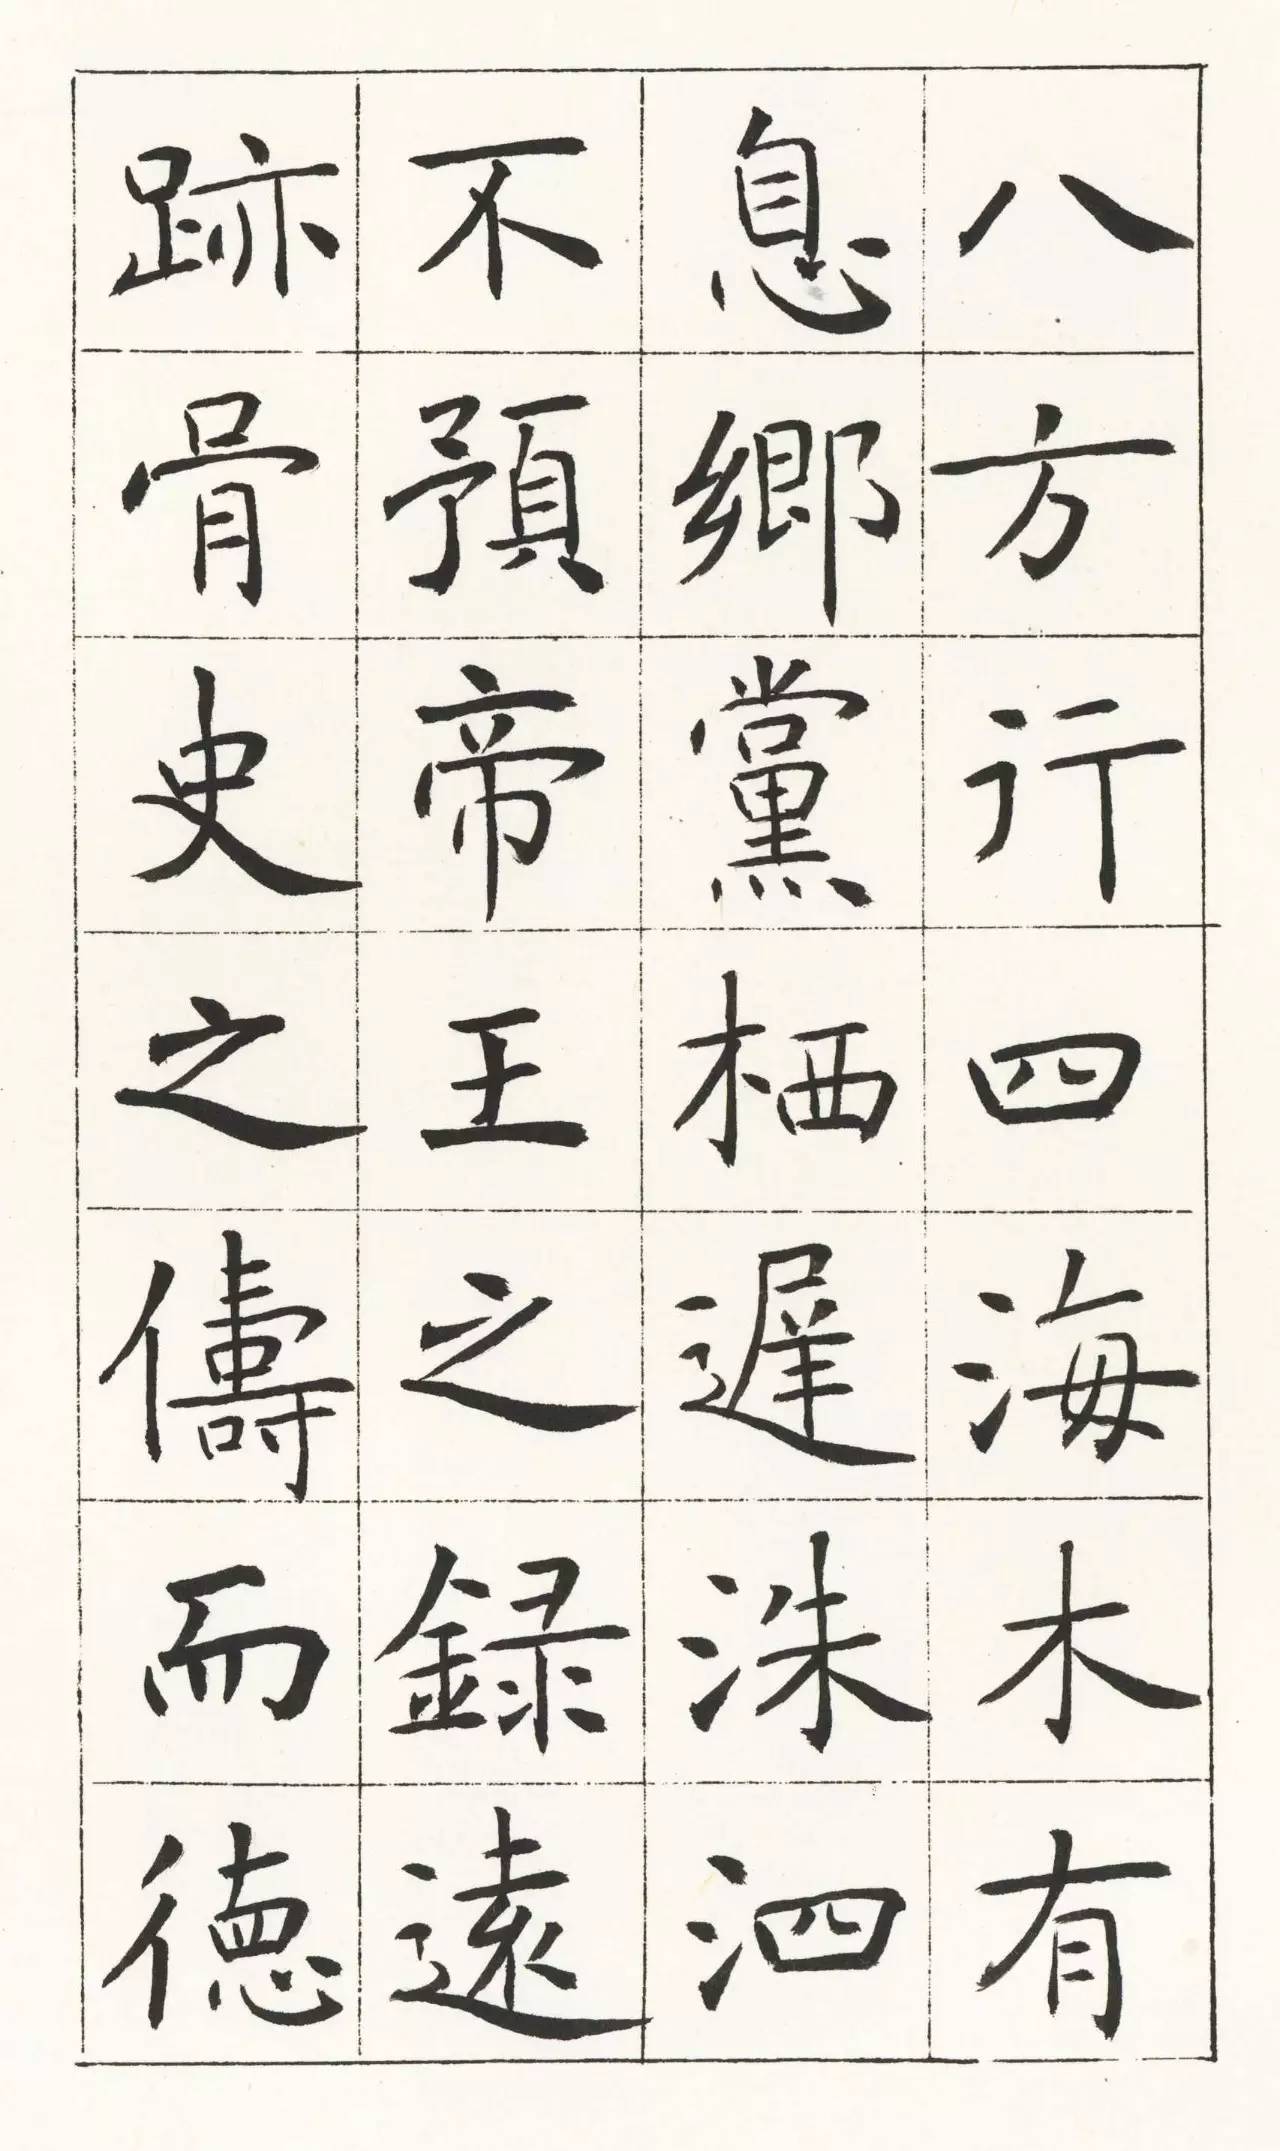 八方行四海木有
息鄉黨栖遲洙泗
不預帝王之録遠
跡胥史之儔而德